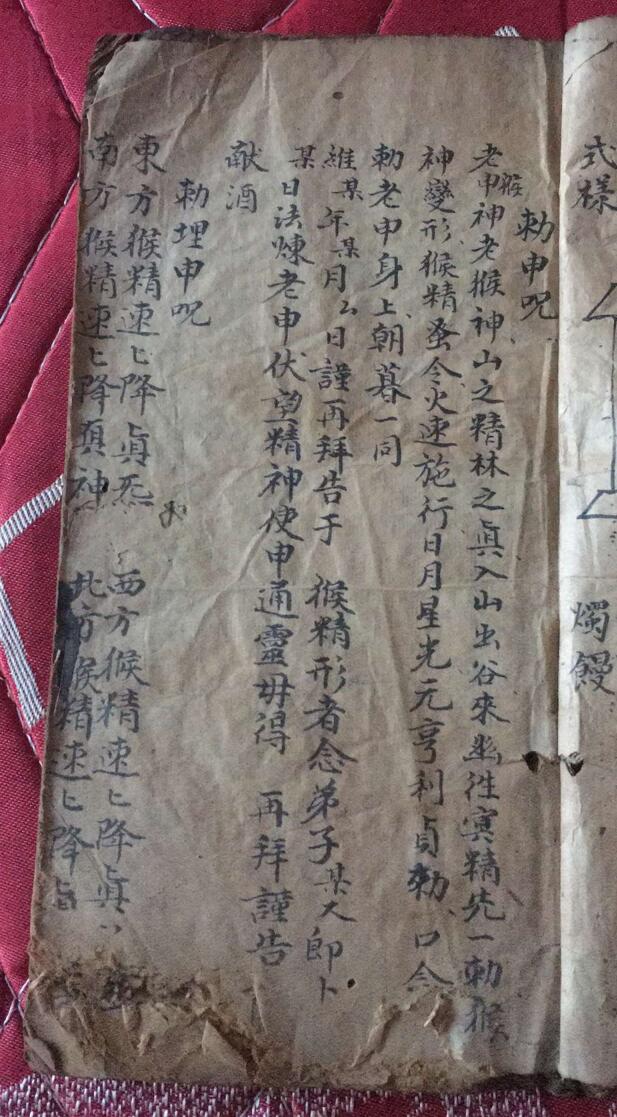 式樣 燭饅
勅申呪
老申神老猴神山之精林之眞入山出谷來幽往冥精先一勅猴
猴
神變形猴精蚤令火速施行日月星光元亨利貞勅口念
勅老申身上朝暮一同
維某年某月厶日謹再拜告于 猴精形者念弟子某人郎卜
某日法煉老申伏望精神使申通靈毋得 再拜謹告
献酒
勅埋申呪
東方猴精速匕降眞炁 西方猴精速匕降眞
南方猴精速匕降眞神 北方猴精速匕降